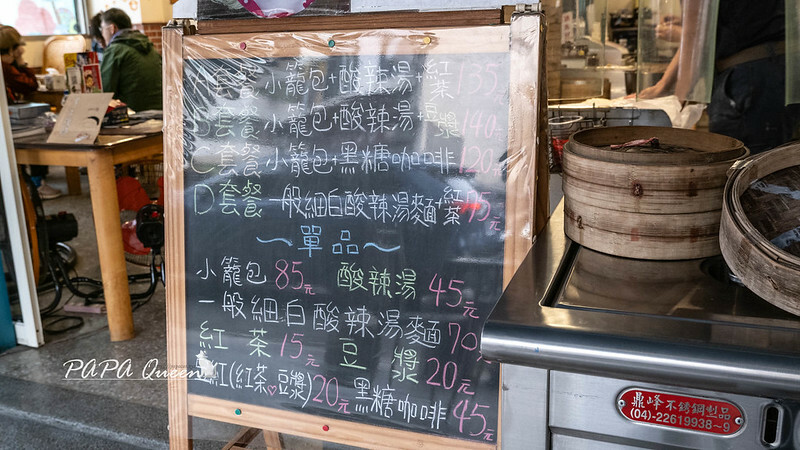 A套餐 小籠包+酸辣湯+紅茶 135
B套餐 小籠包+酸辣湯+豆漿 140元
C套餐 小籠包+黑糖咖啡 120元
D套餐 一般細白酸辣湯麵+紅茶 75元
~單品~
小籠包 85元 酸辣湯 45元
一般細白酸辣湯麵 70元
紅茶 15元 豆漿 20元
豆紅(紅茶♥豆漿) 20元 黑糖咖啡 45元
PAPA Queen
鼎峰不銹鋼製品
(04)-22619938~9